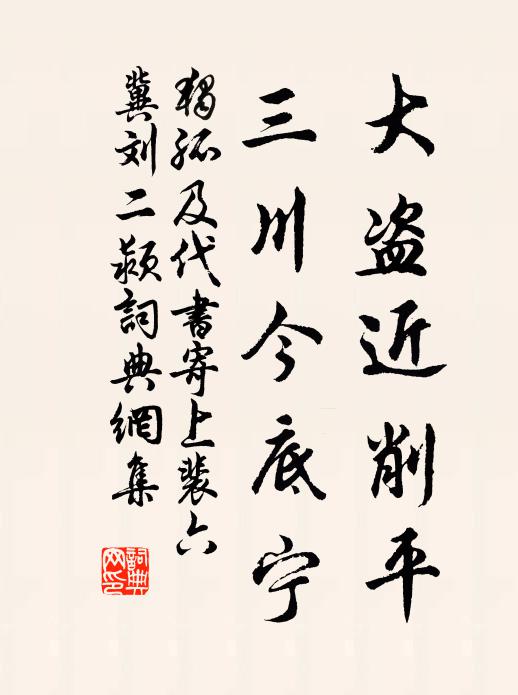 大盗近削平
三川今底宁
独孤及代書寄上裴六
冀刘二颍詞典網集
詞典
网印